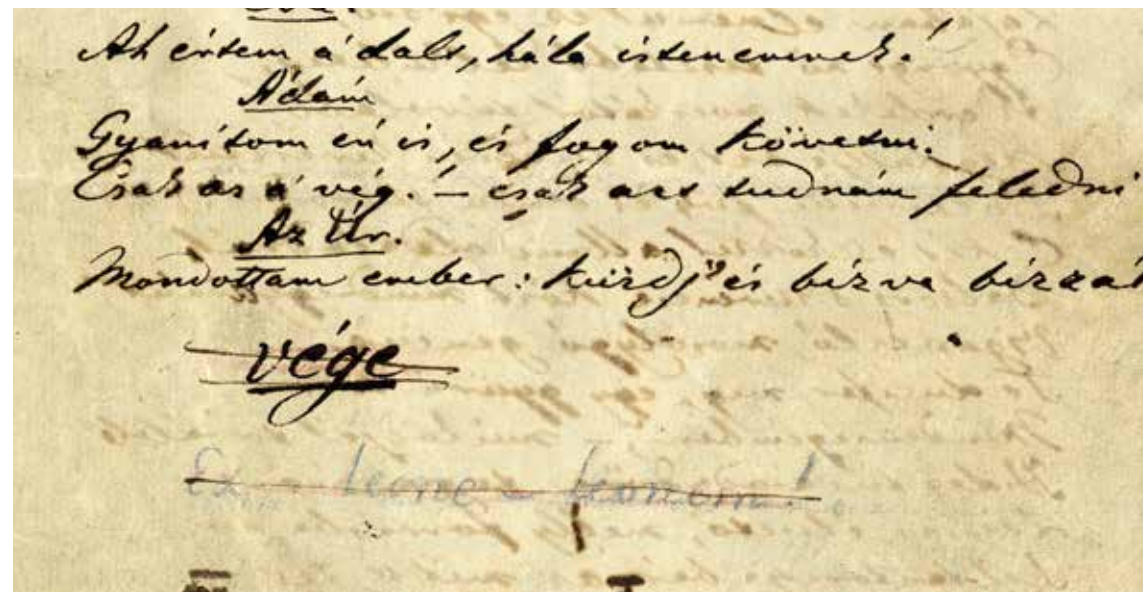 Ah értem a' dalt, hála istenemnek!
Ádám
Gyanítom én is, és fogom követni.
Csak az a' vég! – csak azt tudnám feledni
Az Úr.
Mondottam ember: küzdj' és bízva bízzál
vége
Ex leone leonem!